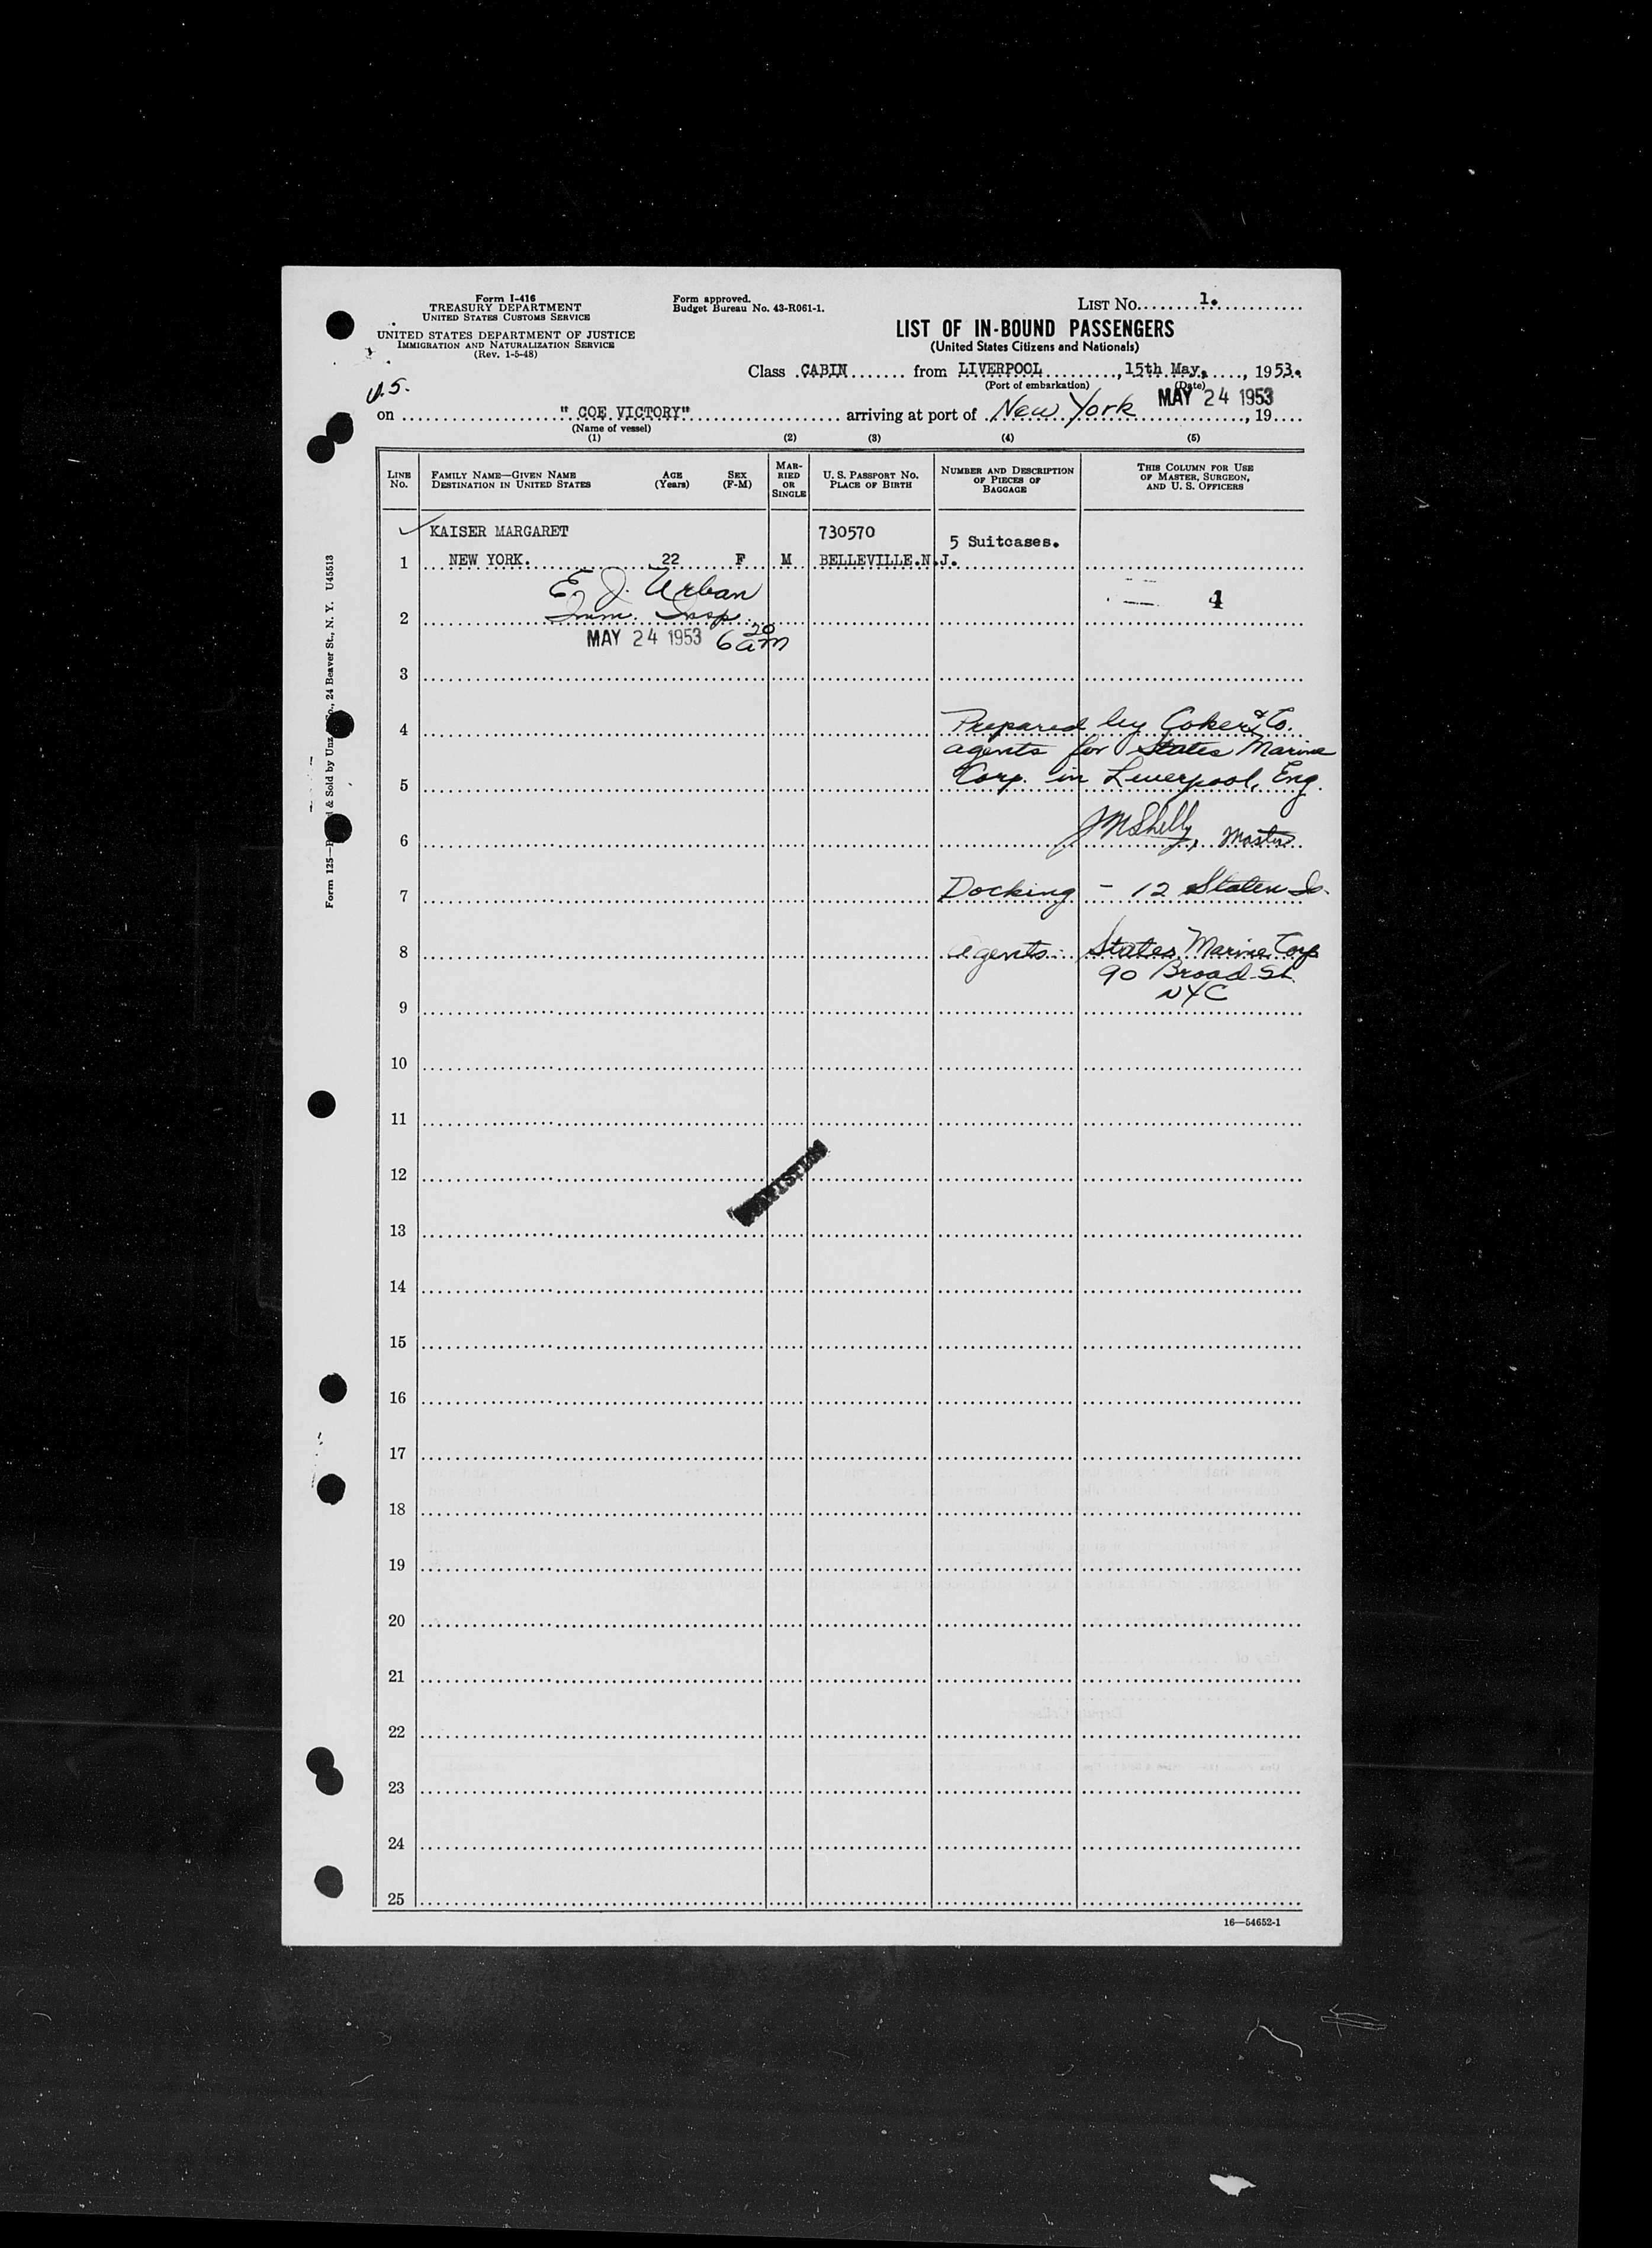 Form I-416
TREASURY DEPARTMENT
UNITED STATES CUSTOMS SERVICE
UNITED STATES DEPARTMENT OF JUSTICE
IMMIGRATION AND NATURALIZATION SERVICE
(Rev. 1-5-48)
Form approved.
Budget Bureau No. 43-R061-1.
LIST No. 1.
LIST OF IN-BOUND PASSENGERS
(United States Citizens and Nationals)
Class CABIN from LIVERPOOL, 15th May, 1953.
(Port of embarkation) (Date)
U.S.
MAY 24 1953
on " COE VICTORY" arriving at port of New York, 19
(Name of vessel)
(1) (2) (3) (4) (5)
LINE No.
FAMILY NAME—GIVEN NAME
DESTINATION IN UNITED STATES
AGE (Years)
SEX (F-M)
MARRIED OR SINGLE
U. S. PASSPORT No.
PLACE OF BIRTH
NUMBER AND DESCRIPTION OF PIECES OF BAGGAGE
THIS COLUMN FOR USE OF MASTER, SURGEON, AND U. S. OFFICERS
KAISER MARGARET 730570 5 Suitcases.
1 NEW YORK. 22 F M BELLEVILLE.N.J.
E. J. Urban
4
2 Imm. Insp.
MAY 24 1953 6 20 am
3
Prepared by Coker & Co.
4
agents for States Marine
Corp. in Liverpool, Eng.
5
JM Shelly, Master
6
Docking - 12 Staten Is.
7
8 Agents: States Marine Corp
90 Broad St.
NYC
9
10
11
12
13
14
15
16
17
18
19
20
21
22
23
24
25
16—54652-1
Form 125— & Sold by Unz Co., 24 Beaver St., N. Y. U45513